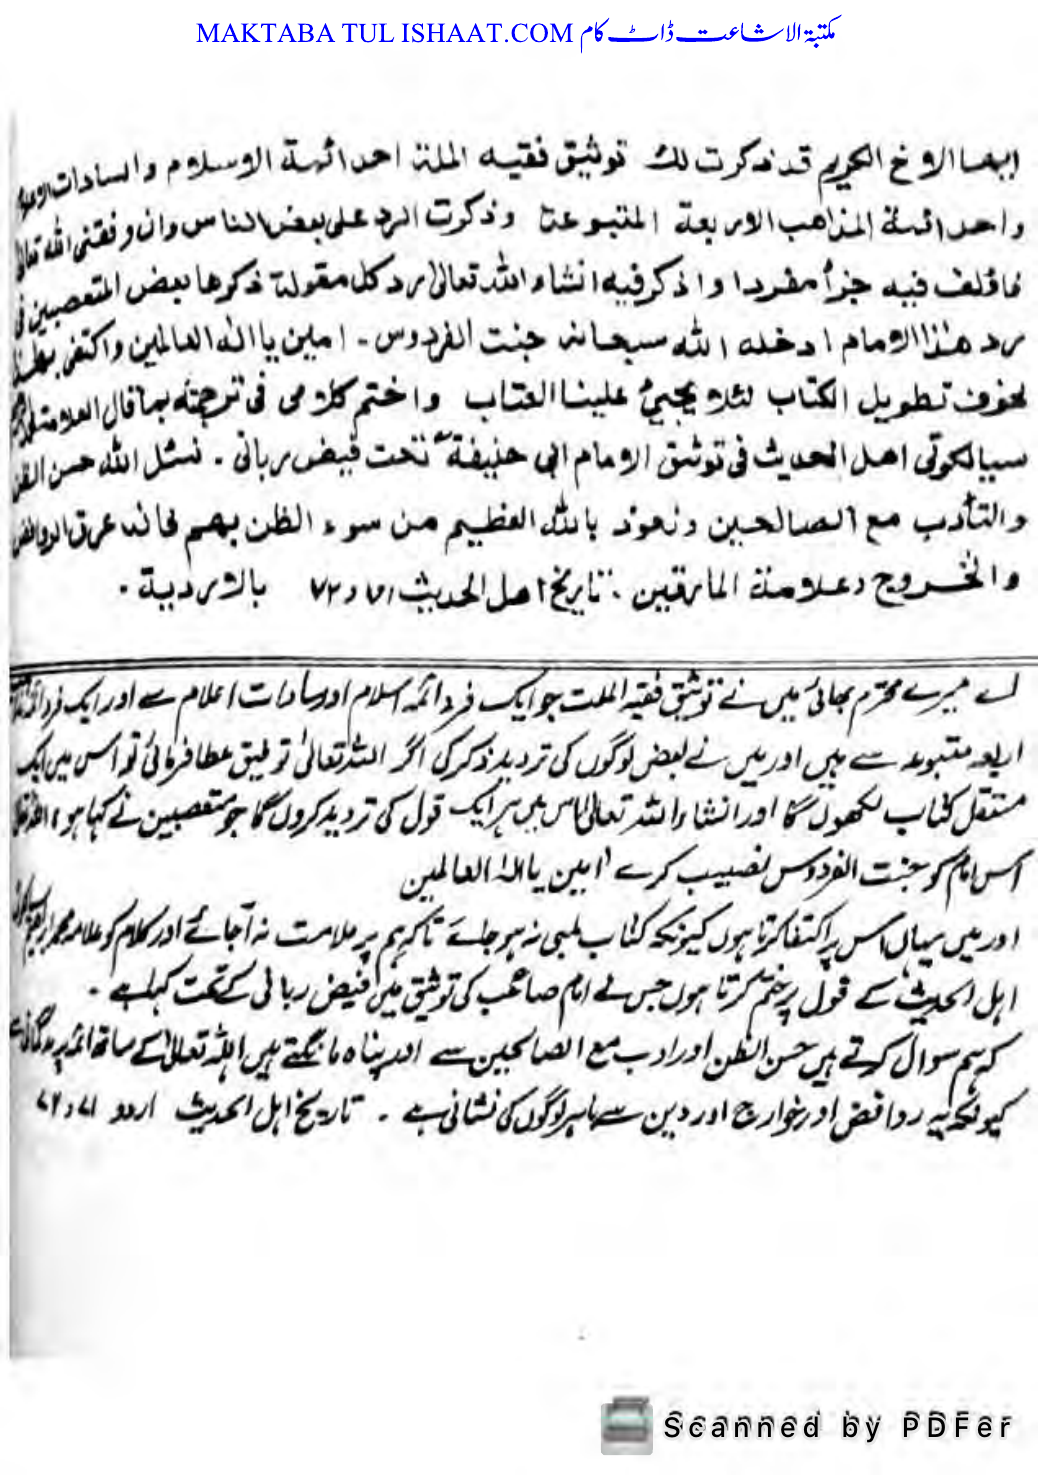 MAKTABA TUL ISHAAT.COM مکتبۃ الاشاعت ڈاٹ کام
ایها الاخ الکریم قد ذکرت لک توثیق فقیه الملة احد ائمة الاسلام والسادات
واحد ائمة المذاهب الاربعة المتبوعة وذکرت الرد علی بعض الناس وان وفقنی الله تعالی
فاؤلف فیه جزأ مفردا واذکر فیه انشاء الله تعالی رد کل مقولة ذکرها بعض المتعصبین فی
رد هذا الامام ادخله الله سبحانه جنت الفردوس ۔ امین یا اله العالمین واکتفی بهٰهنا
لخوف تطویل الکتاب لئلا یجیئ علینا العتاب واختم کلامی فی ترجمته بما قال العلامة
سیالکوتی اهل الحدیث فی توثیق الامام ابی حنیفة تحت فیض ربانی ۔ نسئل الله حسن الظن
والتأدب مع الصالحین ونعوذ بالله العظیم من سوء الظن بهم فانه عرق الروافض
والخروج وعلامة المارقین ۔ تاریخ اهل الحدیث ۷۱ و ۷۲ بالاردیة ۔
اے میرے محترم بھائی میں نے توثیق فقیہ الملت جو ایک فرد ائمہ اسلام اور سادات اعلام سے اور ایک فرد ائمہ
اربعہ متبوعہ سے ہیں اور میں نے بعض لوگوں کی تردید ذکر کی اگر اللہ تعالیٰ توفیق عطا فرمائی تو اس میں ایک
مستقل کتاب لکھوں گا اور انشاء اللہ تعالیٰ اس میں ہر ایک قول کی تردید کروں گا جو متعصبین نے کہا ہو
اس امام کو جنت الفردوس نصیب کرے امین یا الٰہ العالمین
اور میں یہاں اس پر اکتفا کرتا ہوں کیونکہ کتاب لمبی نہ ہو جائے تاکہ ہم پر ملامت نہ آ جائے اور کلام کو علامہ محمد ابراہیم
اہل الحدیث کے قول پر ختم کرتا ہوں جس نے امام صاحب کی توثیق میں فیض ربانی کے تحت کہا ہے ۔
کہ ہم سوال کرتے ہیں حسن الظن اور ادب مع الصالحین سے اور پناہ مانگتے ہیں اللہ تعالیٰ کے ساتھ ائمہ پر بدگمانی
کیونکہ یہ روافض اور خوارج اور دین سے باہر لوگوں کی نشانی ہے ۔ تاریخ اہل الحدیث اردو ۷۱ و ۷۲
Scanned by PDFer